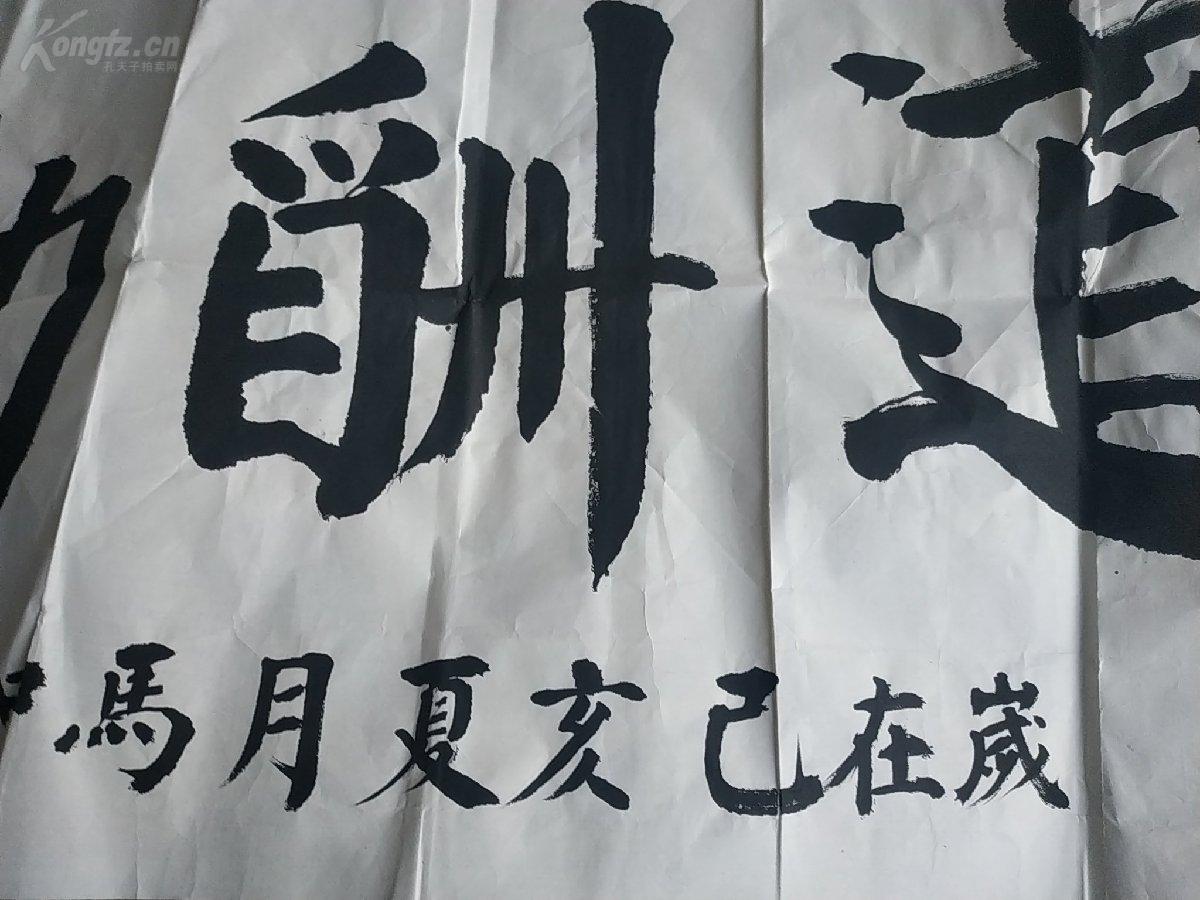 Kongfz.cn
孔夫子拍卖网
道酬
歲在己亥夏月馬